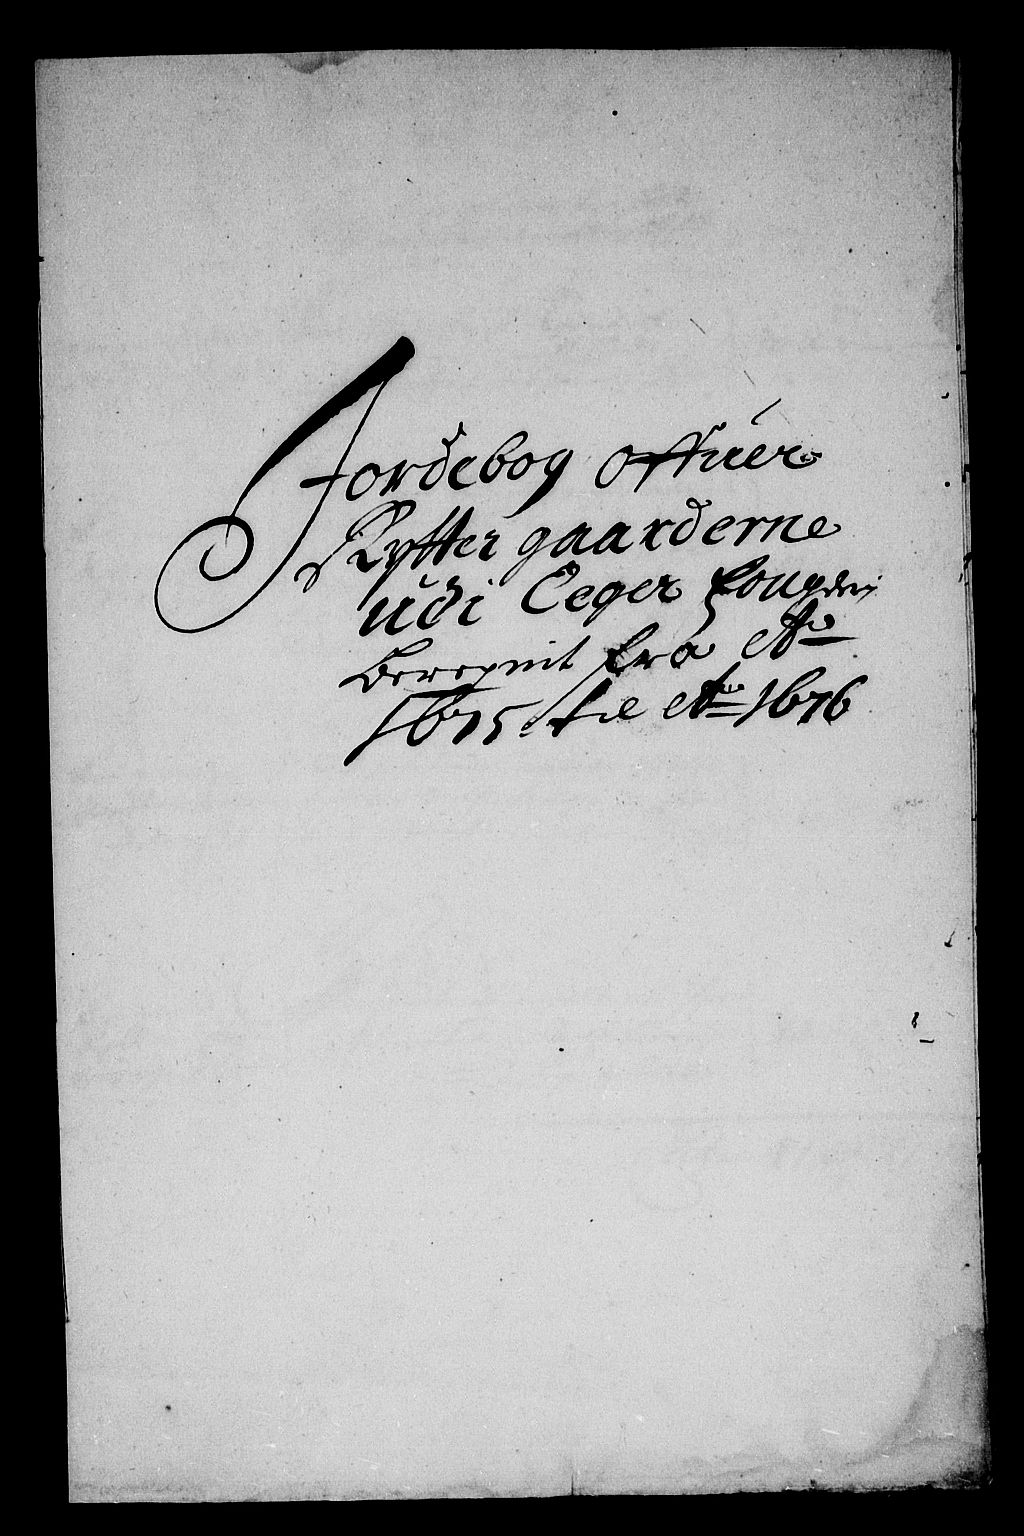 Jordebog offuer
Rytter gaarderne
udi Eeger fougderi
Beregnit fra Ao
1675 til Ao 1676